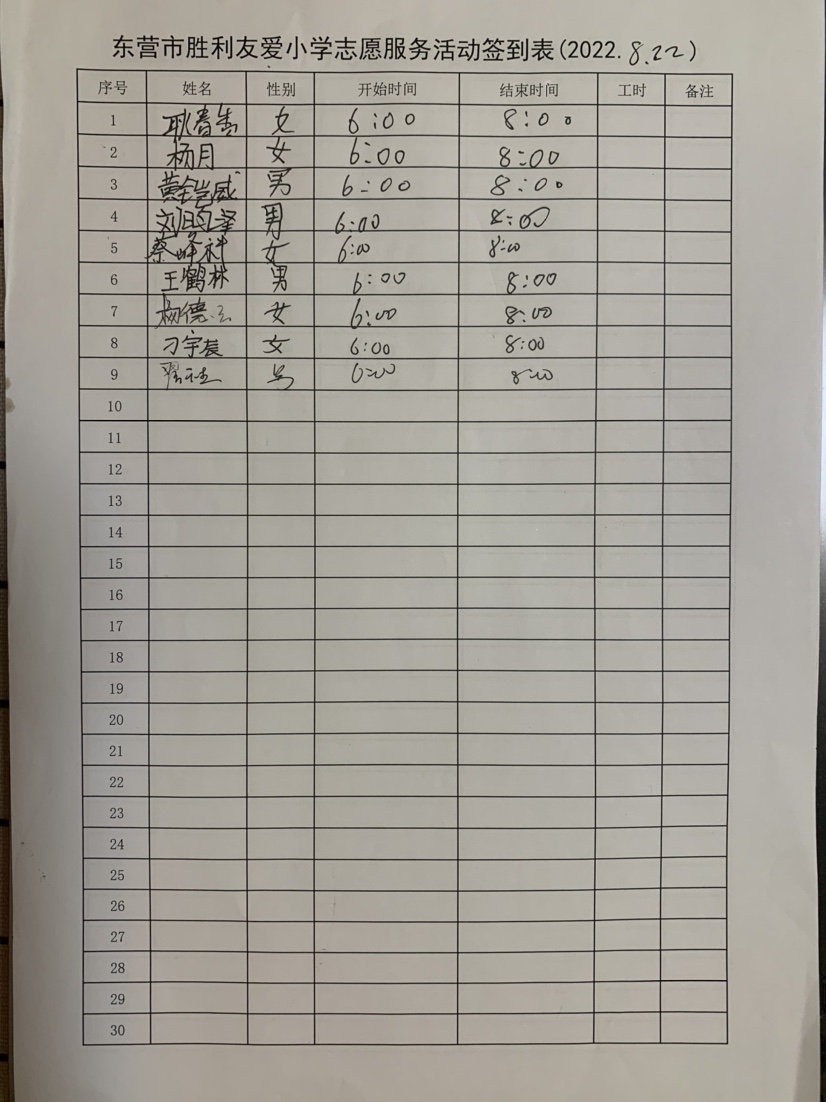 东营市胜利友爱小学志愿服务活动签到表(2022.8.22)
序号 姓名 性别 开始时间 结束时间 工时 备注
1 耿春 女 6:00 8:00
2 杨月 女 6:00 8:00
3 黄铠威 男 6:00 8:00
4 刘泽 男 6:00 8:00
5 蔡峰 女 6:00 8:00
6 王鹤林 男 6:00 8:00
7 杨德 女 6:00 8:00
8 刁宇辰 女 6:00 8:00
9 6:00 8:00
10
11
12
13
14
15
16
17
18
19
20
21
22
23
24
25
26
27
28
29
30